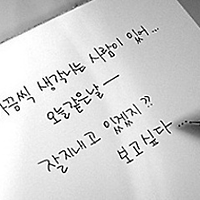 가끔씩 생각나는 사람이 있어...
오늘같은날 —
잘지내고 있겠지??
보고싶다